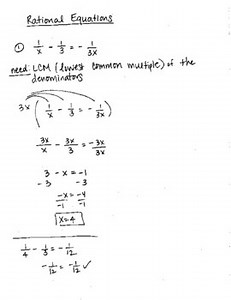 Rational Equations
① 1/x - 1/3 = - 1/3x
need: LCM (lowest common multiple) of the
denominators
3x ( 1/x - 1/3 = - 1/3x )
3x/x - 3x/3 = -3x/3x
3 - x = -1
-3 -3
-x/-1 = -4/-1
x=4
1/4 - 1/3 = -1/12
-1/12 = -1/12 ✓